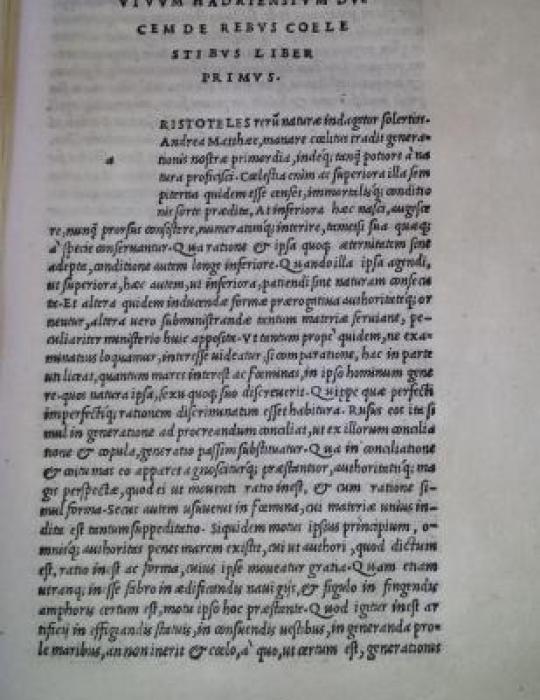 VIVUM HADRIENSIVM DV
CEM DE REBVS COELE
STIBVS LIBER
PRIMVS.
RISTOTELES rerũ naturæ indagator solertiss.
Andrea Matthæe, manare cœlitus tradit genera-
a
tionis nostræ primordia, indeq; tanq̃ potiore à na
tura proficisci. Cœlestia enim ac superiora illa sem
piterna quidem esse censet, immortaliq; conditio
nis sorte prædita, At inferiora hæc nasci, augesce
re, nunq̃ prorsus consistere, numeratimq; interire, tametsi sua quæq;
à specie conseruantur. Qua ratione & ipsa quoq; æternitatem sint
adepta, conditione autem longe inferiore. Quando illa ipsa agendi,
ut superiora, hæc autem, ut inferiora, patiendi sint naturam consecu
ta. Et altera quidem inducendæ formæ prærogatiua authoritateq; or
nentur, altera uero subministrandæ tantum materiæ seruiant, pe-
culiariter ministerio huic apposita. Vt tantum propè quidem, ne exa-
minatius loquamur, interesse uideatur, si comparatione, hac in parte
uti liceat, quantum mares interest ac fœminas, in ipso hominum gene
re. quos natura ipsa, sexu quoq; suo discreuerit. Quippe quæ perfecti
imperfectiq; rationem discriminatim esset habitura. Rursus eos ita si
mul in generatione ad procreandum conciliat, ut ex illorum concilia
tione & copula, generatio passim substituatur. Qua in conciliatione
& coitu mas eo apparet agnosciturq; præstantior, authoritatisq; ma
gis perspectæ, quod ei ut mouenti ratio inest, & cum ratione si-
mul forma. Secus autem usuuenit in fœmina, cui materiæ unius in-
dita est tantum suppeditatio. Siquidem motus ipsius principium, o-
mnisq; authoritas penes marem existit, cui ut authori, quod dictum
est, ratio inest ac forma, cuius ipse moueatur gratia. Quam etiam
utranq; inesse fabro in ædificandis nauigijs, & figulo in fingendis
amphoris certum est, motu ipso hoc præstante. Quod igitur inest ar
tifici in effigiandis statuis, in consuendis uestibus, in generanda pro-
le maribus, an non inerit & cœlo, à quo, ut certum est, generationis